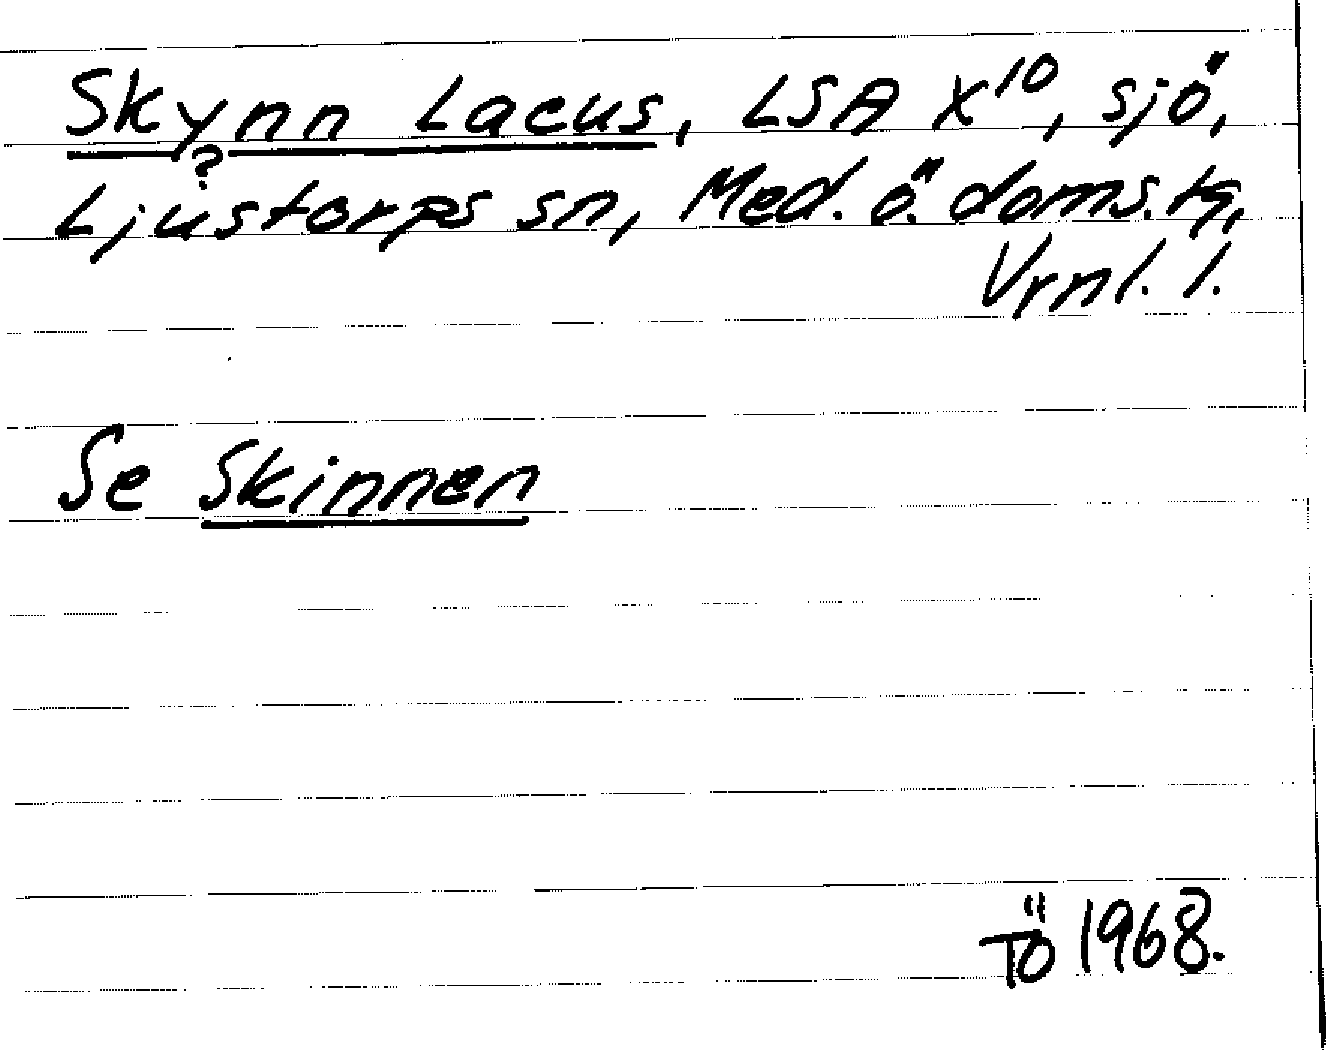 Skynn Lacus, LSA X¹⁰, sjö,
?
Ljustorps sn, Med. ö. doms.tg,
Vrnl. l.
Se Skinnen
TÖ 1968.